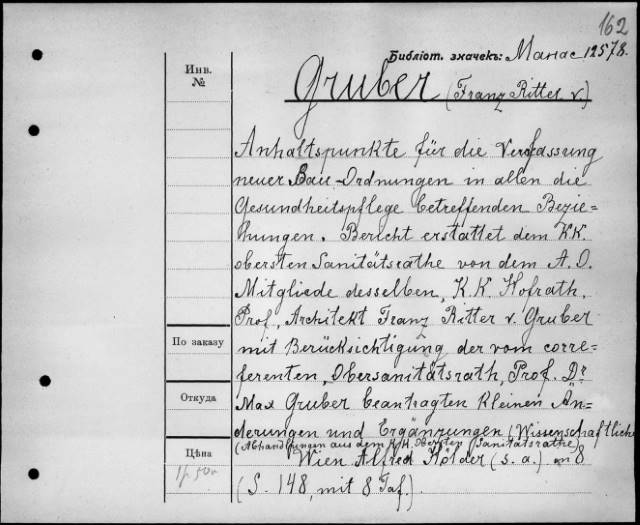 162
Библіот. значек: Манас 12578.
Инв. №
Gruber (Franz Ritter v.)
Anhaltspunkte für die Verfassung
neuer Bau-Ordnungen in allen die
Gesundheitspflege betreffenden Bezie=
hungen. Bericht erstattet dem K.K.
obersten Sanitätsrathe von dem A.O.
Mitgliede desselben, K.K. Hofrath,
Prof., Architekt Franz Ritter v. Gruber
По заказу
mit Berücksichtigung der vom corre=
ferenten, Obersanitätsrath, Prof. Dr
Откуда
Max Gruber beantragten kleinen Än=
derungen und Ergänzungen (Wissenschaftliche
(Abhandlungen aus dem K.K. Obersten Sanitätsrathe)
Цѣна
Wien Alfred Hölder (s. a.) in 8
(S. 148, mit 8 Taf.)